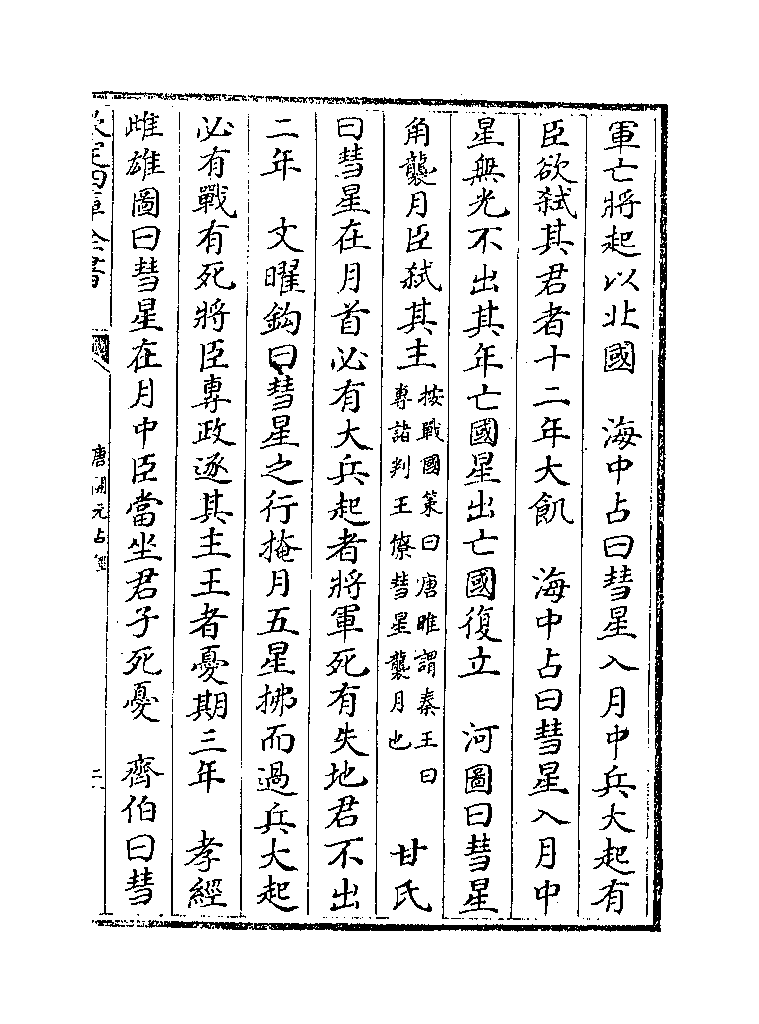 軍亡將起以北國　海中占曰彗星入月中兵大起有
臣欲弑其君者十二年大飢　海中占曰彗星入月中
星無光不出其年亡國星出亡國復立　河圖曰彗星
角襲月臣弑其主按戰國策曰唐睢謂秦王曰專諸判王僚彗星襲月也　甘氏
曰彗星在月首必有大兵起者將軍死有失地君不出
二年　文曜鈎曰彗星之行掩月五星拂而過兵大起
必有戰有死將臣專政逐其主王者憂期三年　孝經
雌雄圖曰彗星在月中臣當坐君子死憂　齊伯曰彗
欽定四庫全書
唐開元占經